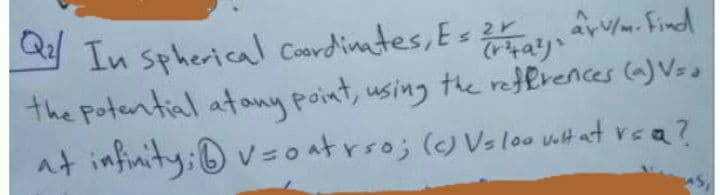 Q2/ In spherical Coordinates, E = 2r/(r²+a²)², âr V/m. Find
the potential at any point, using the references (a) V=0
at infinity; ⓑ V=0 at r=0; (c) V=100 volt at r=a?